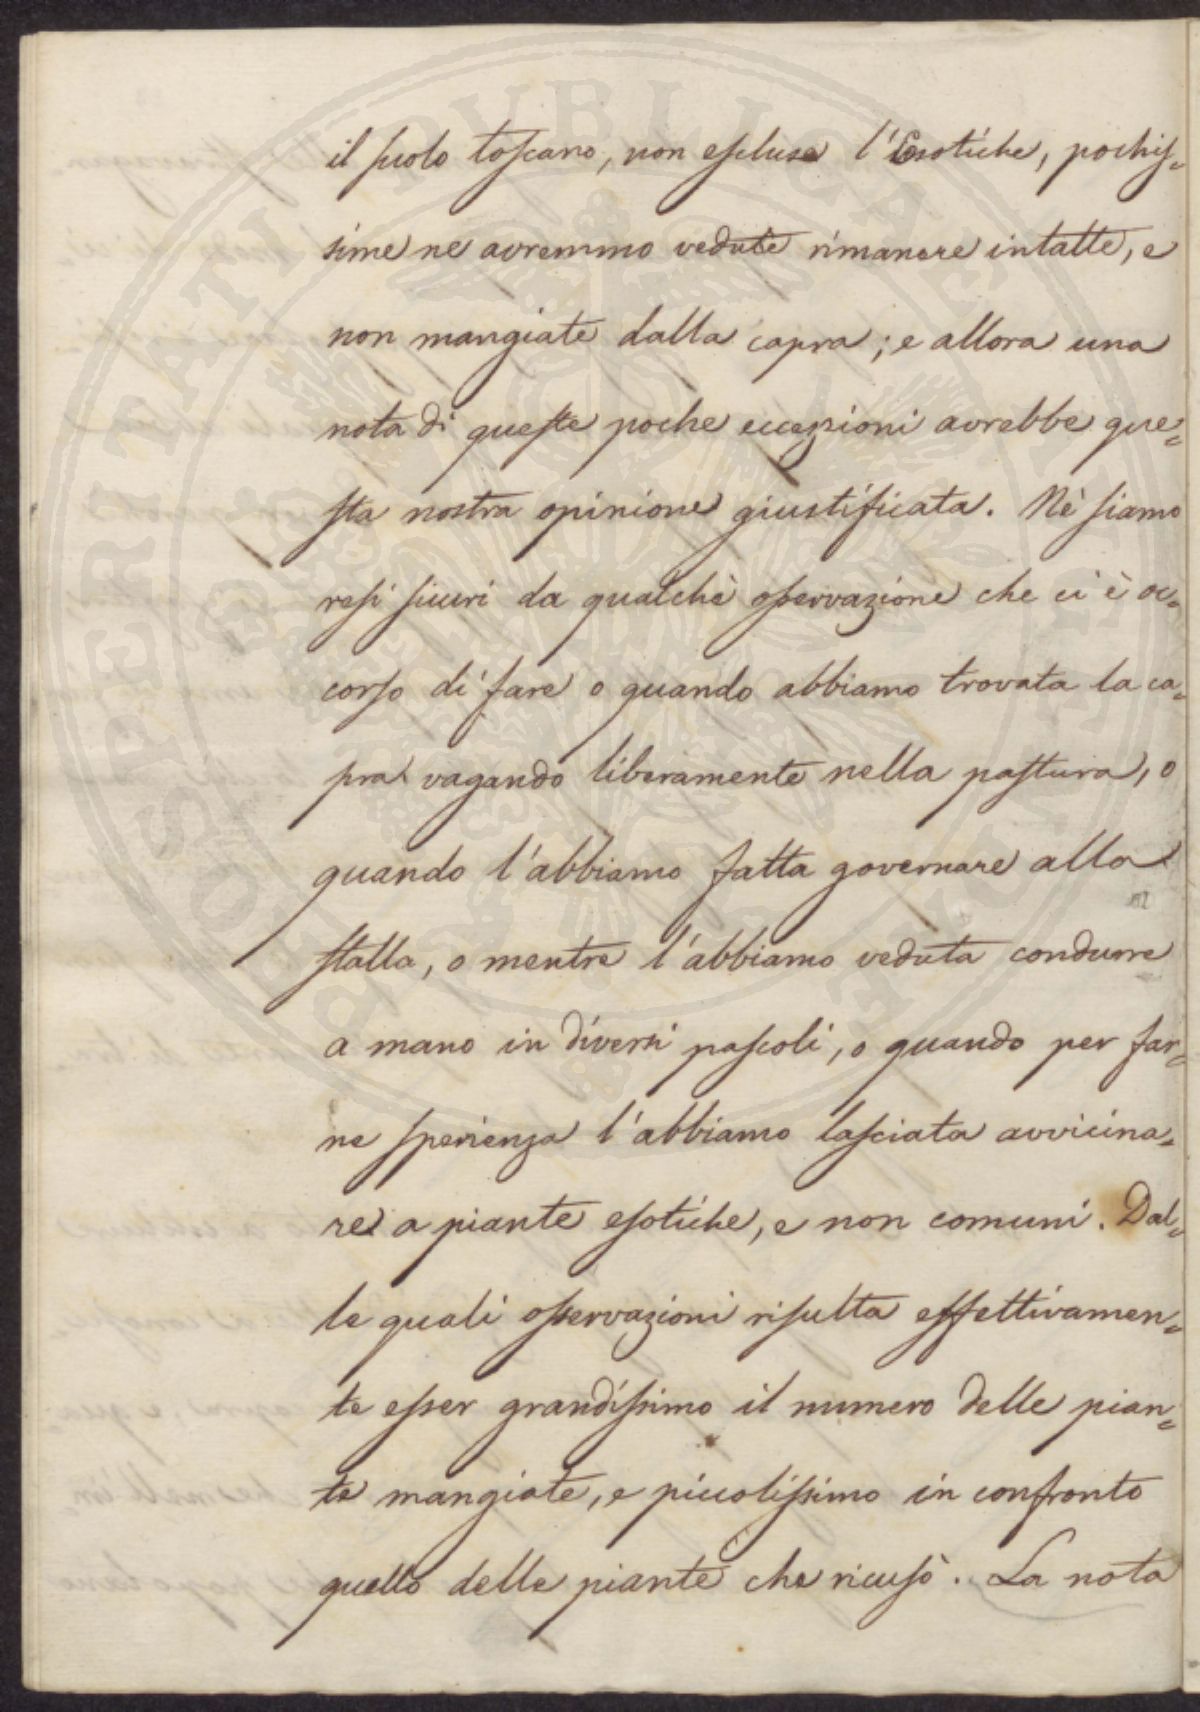 il suolo toscano, non escluse l'Esotiche, pochis=
sime ne avremmo vedute rimanere intatte, e
non mangiate dalla capra; e allora una
nota di queste poche eccezioni avrebbe que=
sta nostra opinione giustificata. Nè siamo
resi sicuri da qualchè osservazione che ci è oc=
corso di fare o quando abbiamo trovata la ca=
pra vagando liberamente nella pastura, o
quando l'abbiamo fatta governare alla
stalla, o mentre l'abbiamo veduta condurre
a mano in diversi pascoli, o quando per far=
ne sperienza l'abbiamo lasciata avvicina=
re a piante esotiche, e non comuni. Dal=
le quali osservazioni risulta effettivamen=
te esser grandissimo il numero delle pian=
te mangiate, e piccolissimo in confronto
quello delle piante che ricusò. La nota
PROSPERITATI PUBLICAE AUGENDAE